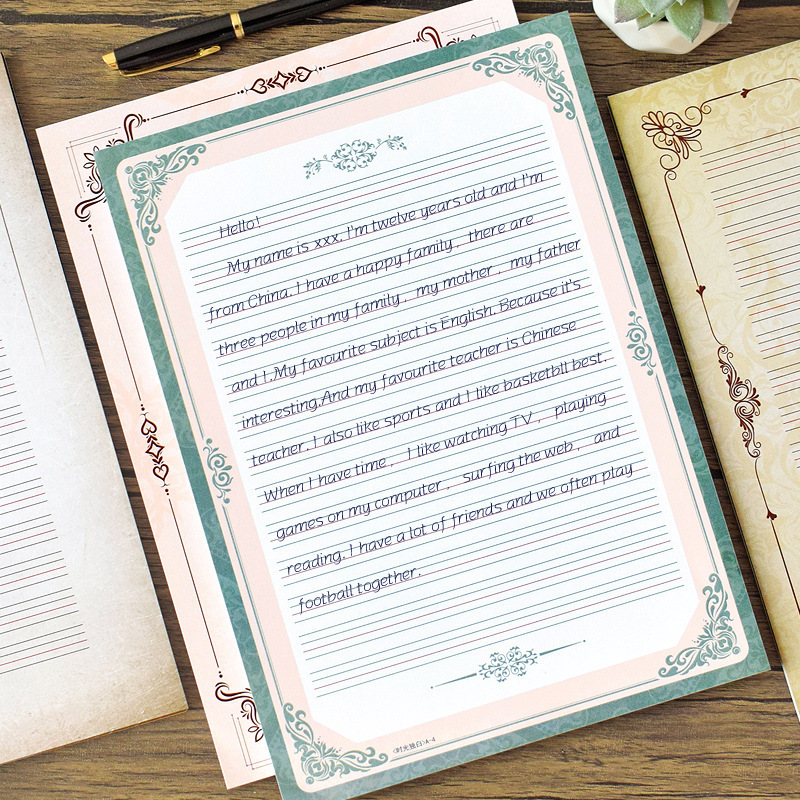 Hello!
My name is xxx. I'm twelve years old and I'm
from China. I have a happy family， there are
three people in my family， my mother， my father
and I.My favourite subject is English. Because it's
interesting.And my favourite teacher is Chinese
teacher. I also like sports and I like basketbll best.
When I have time， I like watching TV， playing
games on my computer， surfing the web， and
reading. I have a lot of friends and we often play
football together.
《时光独白》A-4